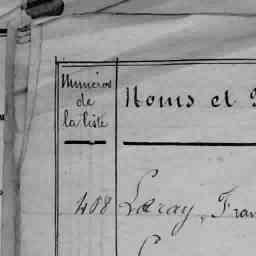 Numéros
de
la liste
Noms et
408 Leray, Fran